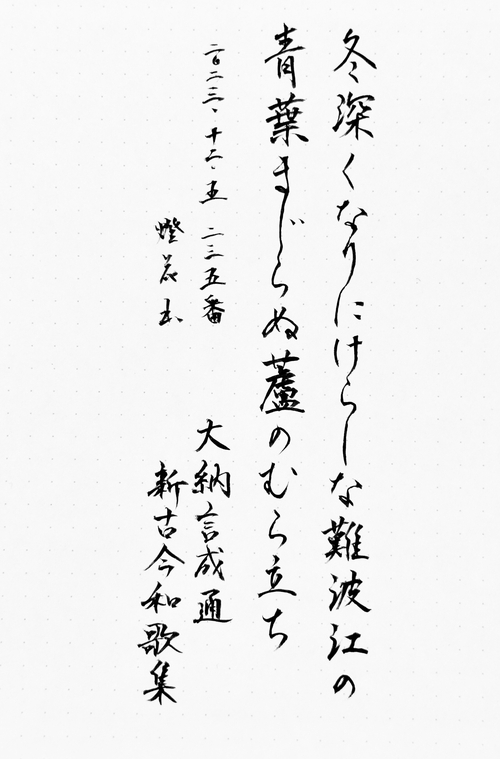 冬深くなりにけらしな難波江の
青葉まじらぬ蘆のむら立ち
大納言成通
新古今和歌集
二〇二三、十二、五 二三五番
燈花玉